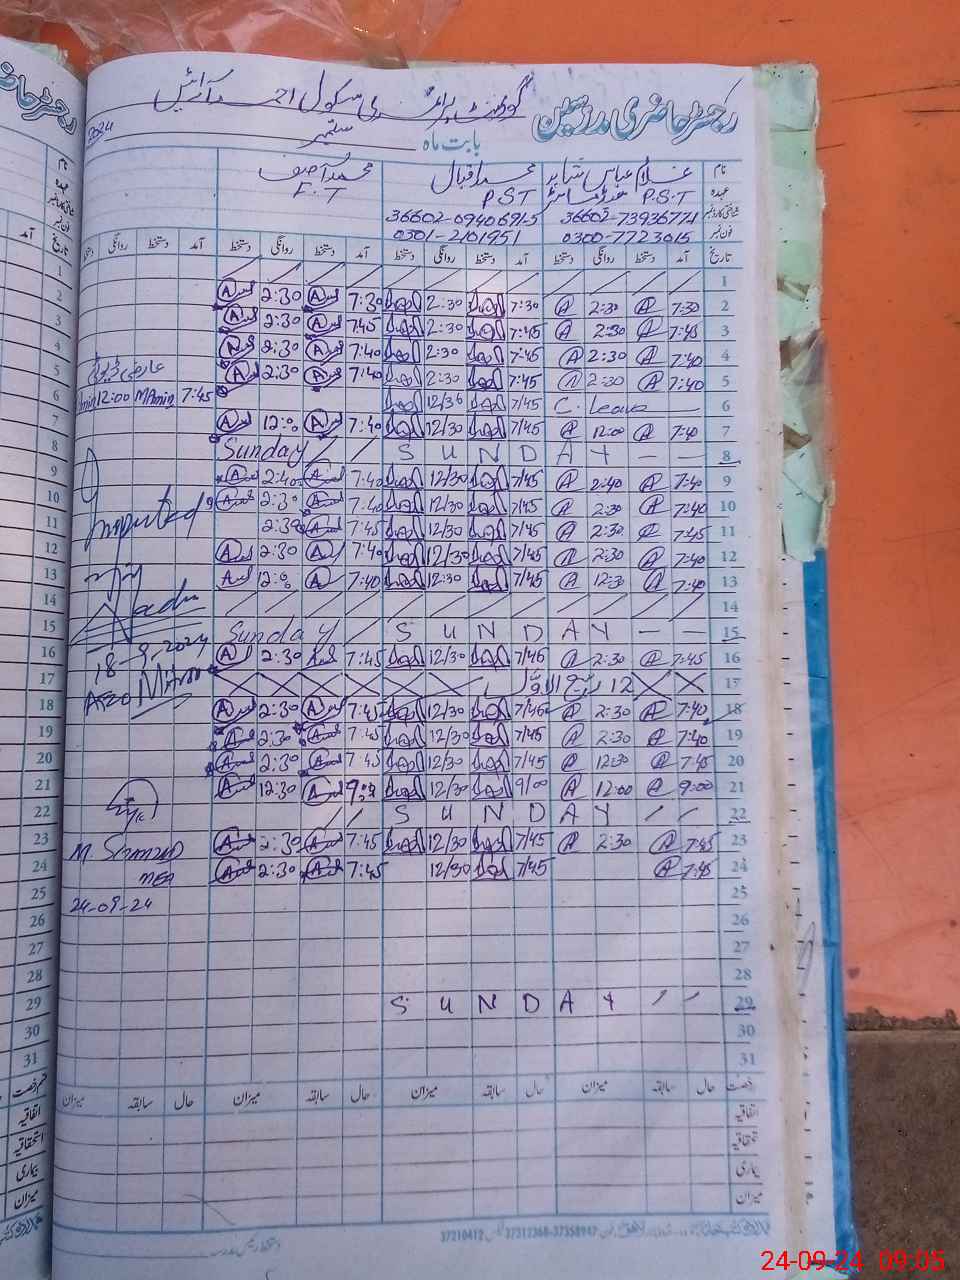 رجسٹر حاضری مدرسین
گورنمنٹ پرائمری سکول احمد آرائیں
بابت ماہ ستمبر 2024
نام غلام عباس شاہد محمد اقبال محمد آصف
عہدہ P.S.T P.S.T E.T
شناختی کارڈ نمبر 36602-7393677-1 36602-0940691-5
فون نمبر 0300-7723015 0301-2101951
تاریخ آمد دستخط روانگی دستخط آمد دستخط روانگی دستخط آمد دستخط روانگی دستخط آمد دستخط روانگی دستخط
1
2 7:30 2:30 7:30 2:30 7:30 2:30
3 7:45 2:30 7:45 2:30 7:45 2:30
4 7:40 2:30 7:45 2:30 7:40 2:30
5 7:40 2:30 7:45 2:30 7:40 2:30 عارضی ڈیوٹی
6 C. Leave 7/45 12/30 7:45 MAmin 12:00
7 7:40 12:00 7/45 12/30 7:40 12:00
8 S U N D A Y Sunday
9 7:40 2:40 7/45 12/30 7:40 2:40
10 7:40 2:30 7/45 12/30 7:40 2:30
11 7:45 2:30 7/45 12/30 7:45 2:30
12 7:40 2:30 7/45 12/30 7:40 2:30
13 7:40 12:30 7/45 12:30 7:40 12:00
14
15 S U N D A Y Sunday
16 7:45 2:30 7/45 12/30 7:45 2:30
18-9-2024
17 12 ربیع الاول
18 7:40 2:30 7/45 12/30 7:45 2:30
19 7:40 2:30 7/45 12/30 7:45 2:30
20 7:45 12:30 7/45 12/30 7:45 2:30
21 9:00 12:00 9/00 12/30 9:00 12:30
22 S U N D A Y
23 7:45 2:30 7/45 12/30 7:45 2:30
24 7:45 7/45 12/30 7:45 2:30
MEA
25 24-09-24
26
27
28
29 S U N D A Y
30
31
قسم رخصت حال سابقہ میزان حال سابقہ میزان حال سابقہ میزان حال سابقہ میزان
اتفاقیہ
استحقاقیہ
بیماری
میزان
دستخط رئیس مدرسہ
24-09-24 09:05